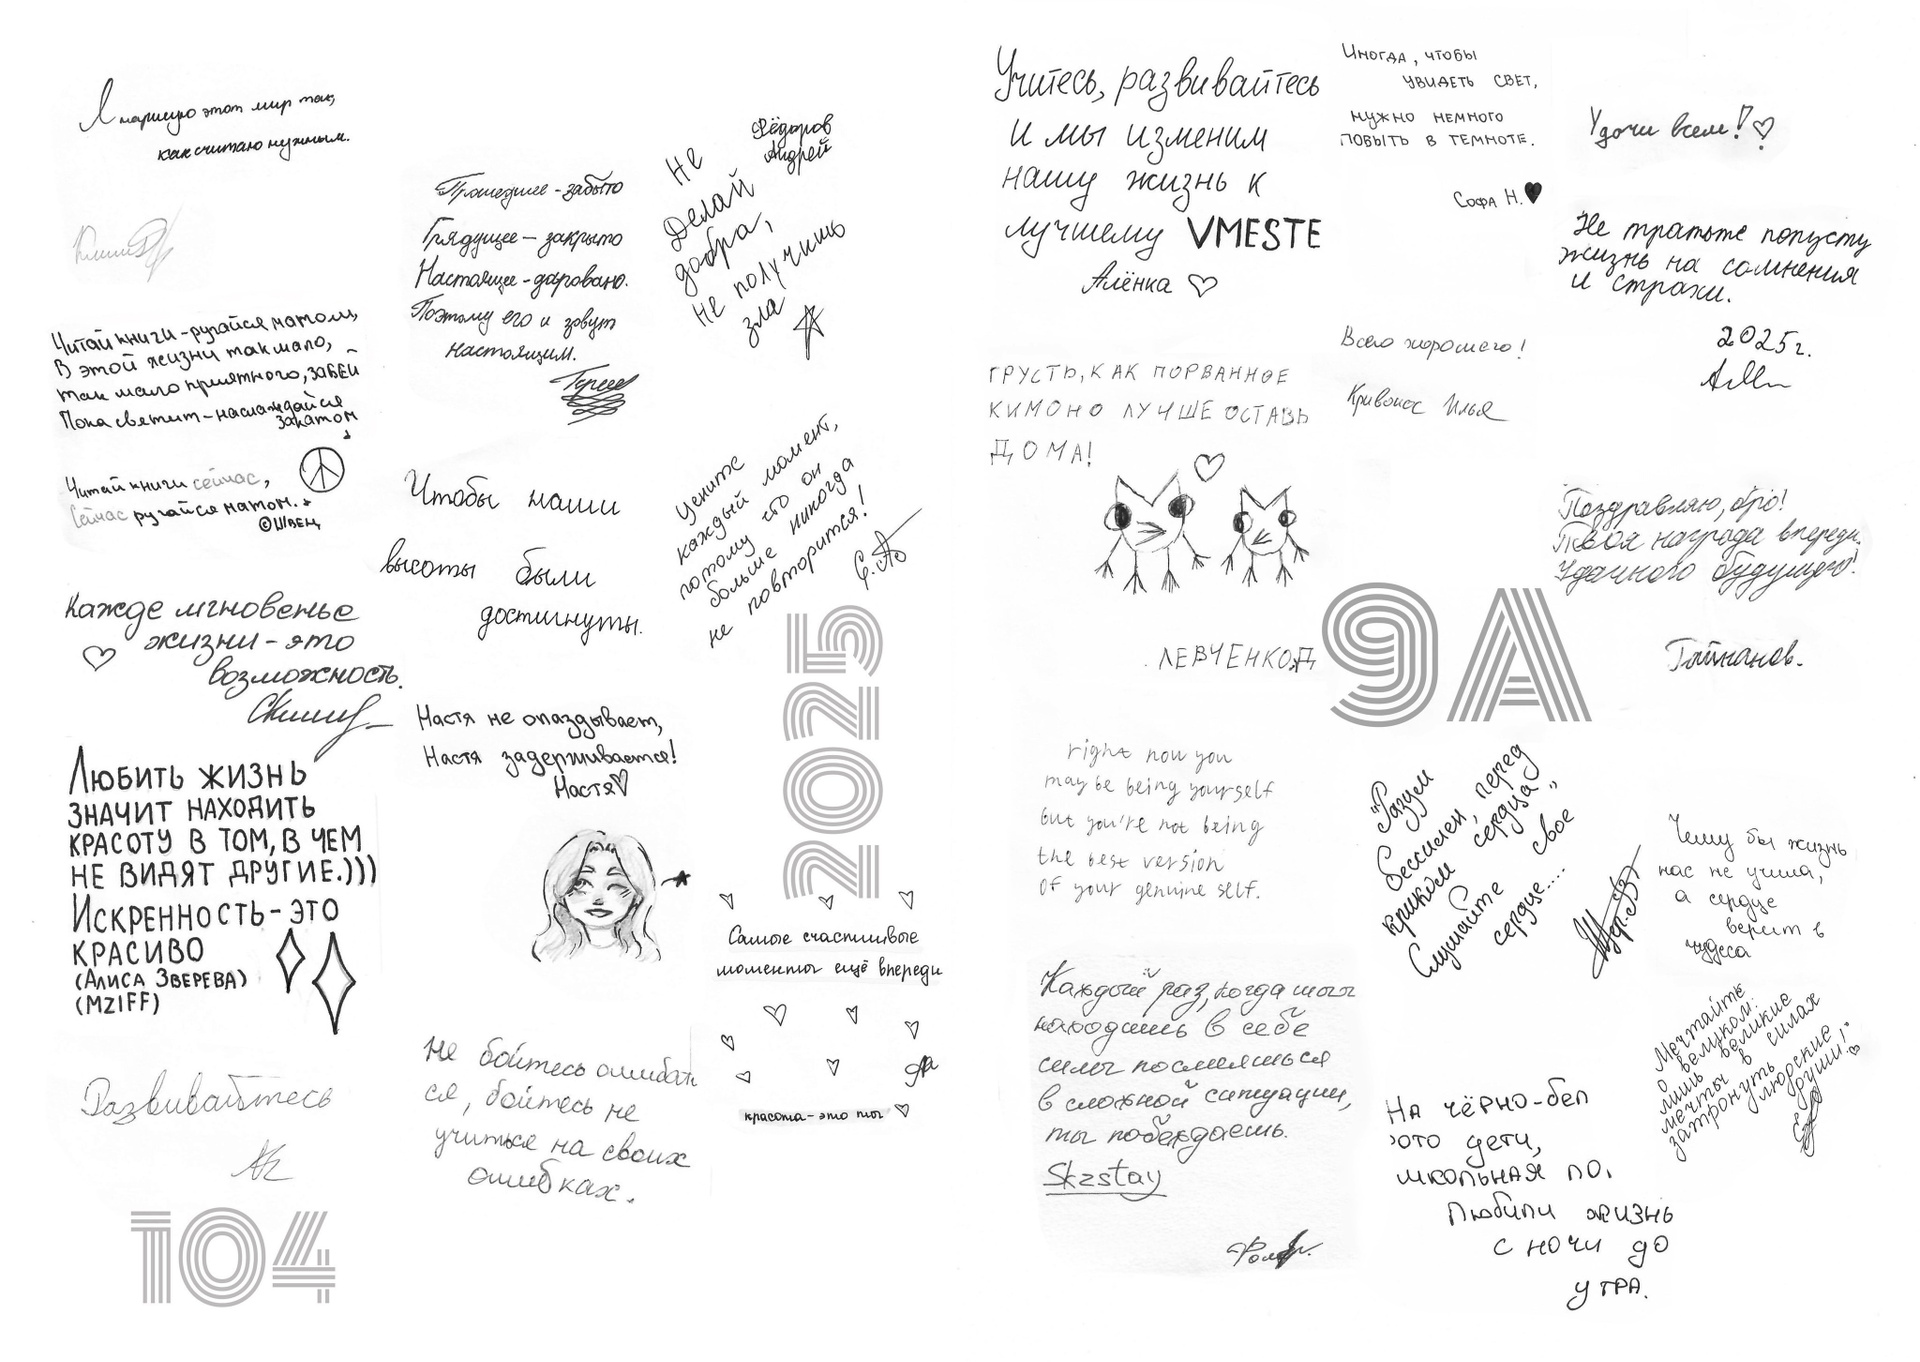 Я нарисую этот мир так,
как считаю нужным.
Читай книги - ругайся матом,
В этой жизни так мало,
так мало приятного, забей
Пока светит - наслаждайся
закатом
Читай книги сейчас,
Сейчас ругайся матом.
©Швец
Кажде мгновенье
жизни - это
возможность.
Любить жизнь
значит находить
красоту в том, в чем
не видят другие.)))
Искренность - это
красиво
(Алиса Зверева)
(MZIFF)
Развивайтесь
104
Прошедшее - забыто
Грядущее - закрыто
Настоящее - даровано.
Поэтому его и зовут
настоящим.
Чтобы наши
высоты были
достигнуты.
Настя не опаздывает,
Настя задерживается!
Настя
Не бойтесь ошибать
ся, бойтесь не
учиться на своих
ошибках.
Фёдоров
Андрей
Не
Делай
добра,
не получишь
зла
Цените
каждый момент,
потому что он
больше никогда
не повторится!
2025
Самые счастливые
моменты ещё впереди
красота - это ты
Учитесь, развивайтесь
и мы изменим
нашу жизнь к
лучшему VMESTE
Алёнка
Грусть, как порванное
кимоно лучше оставь
дома!
Левченко.Д
right now you
may be being yourself
but you're not being
the best version
of your genuine self.
Каждый раз, когда ты
находишь в себе
силы посмеяться
в сложной ситуации,
ты побеждаешь.
Skzstay
Иногда, чтобы
увидеть свет,
нужно немного
побыть в темноте.
Софа Н.
Всего хорошего!
Кривонос Илья
9А
"Разум
бессилен, перед
криком сердца"
Слушайте свое
сердце....
На чёрно-бел
это дети,
школьная по.
Любили жизнь
с ночи до
утра.
Удачи всем!
Не тратьте попусту
жизнь на сомнения
и страхи.
2025г.
Поздравляю, бро!
Твоя награда впереди.
Удачного будущего!
Гайнанов.
Чему бы жизнь
нас не учила,
а сердце
верит в
чудеса
Мечтайте
о великом:
лишь великие
мечты в силах
затронуть людские
души!